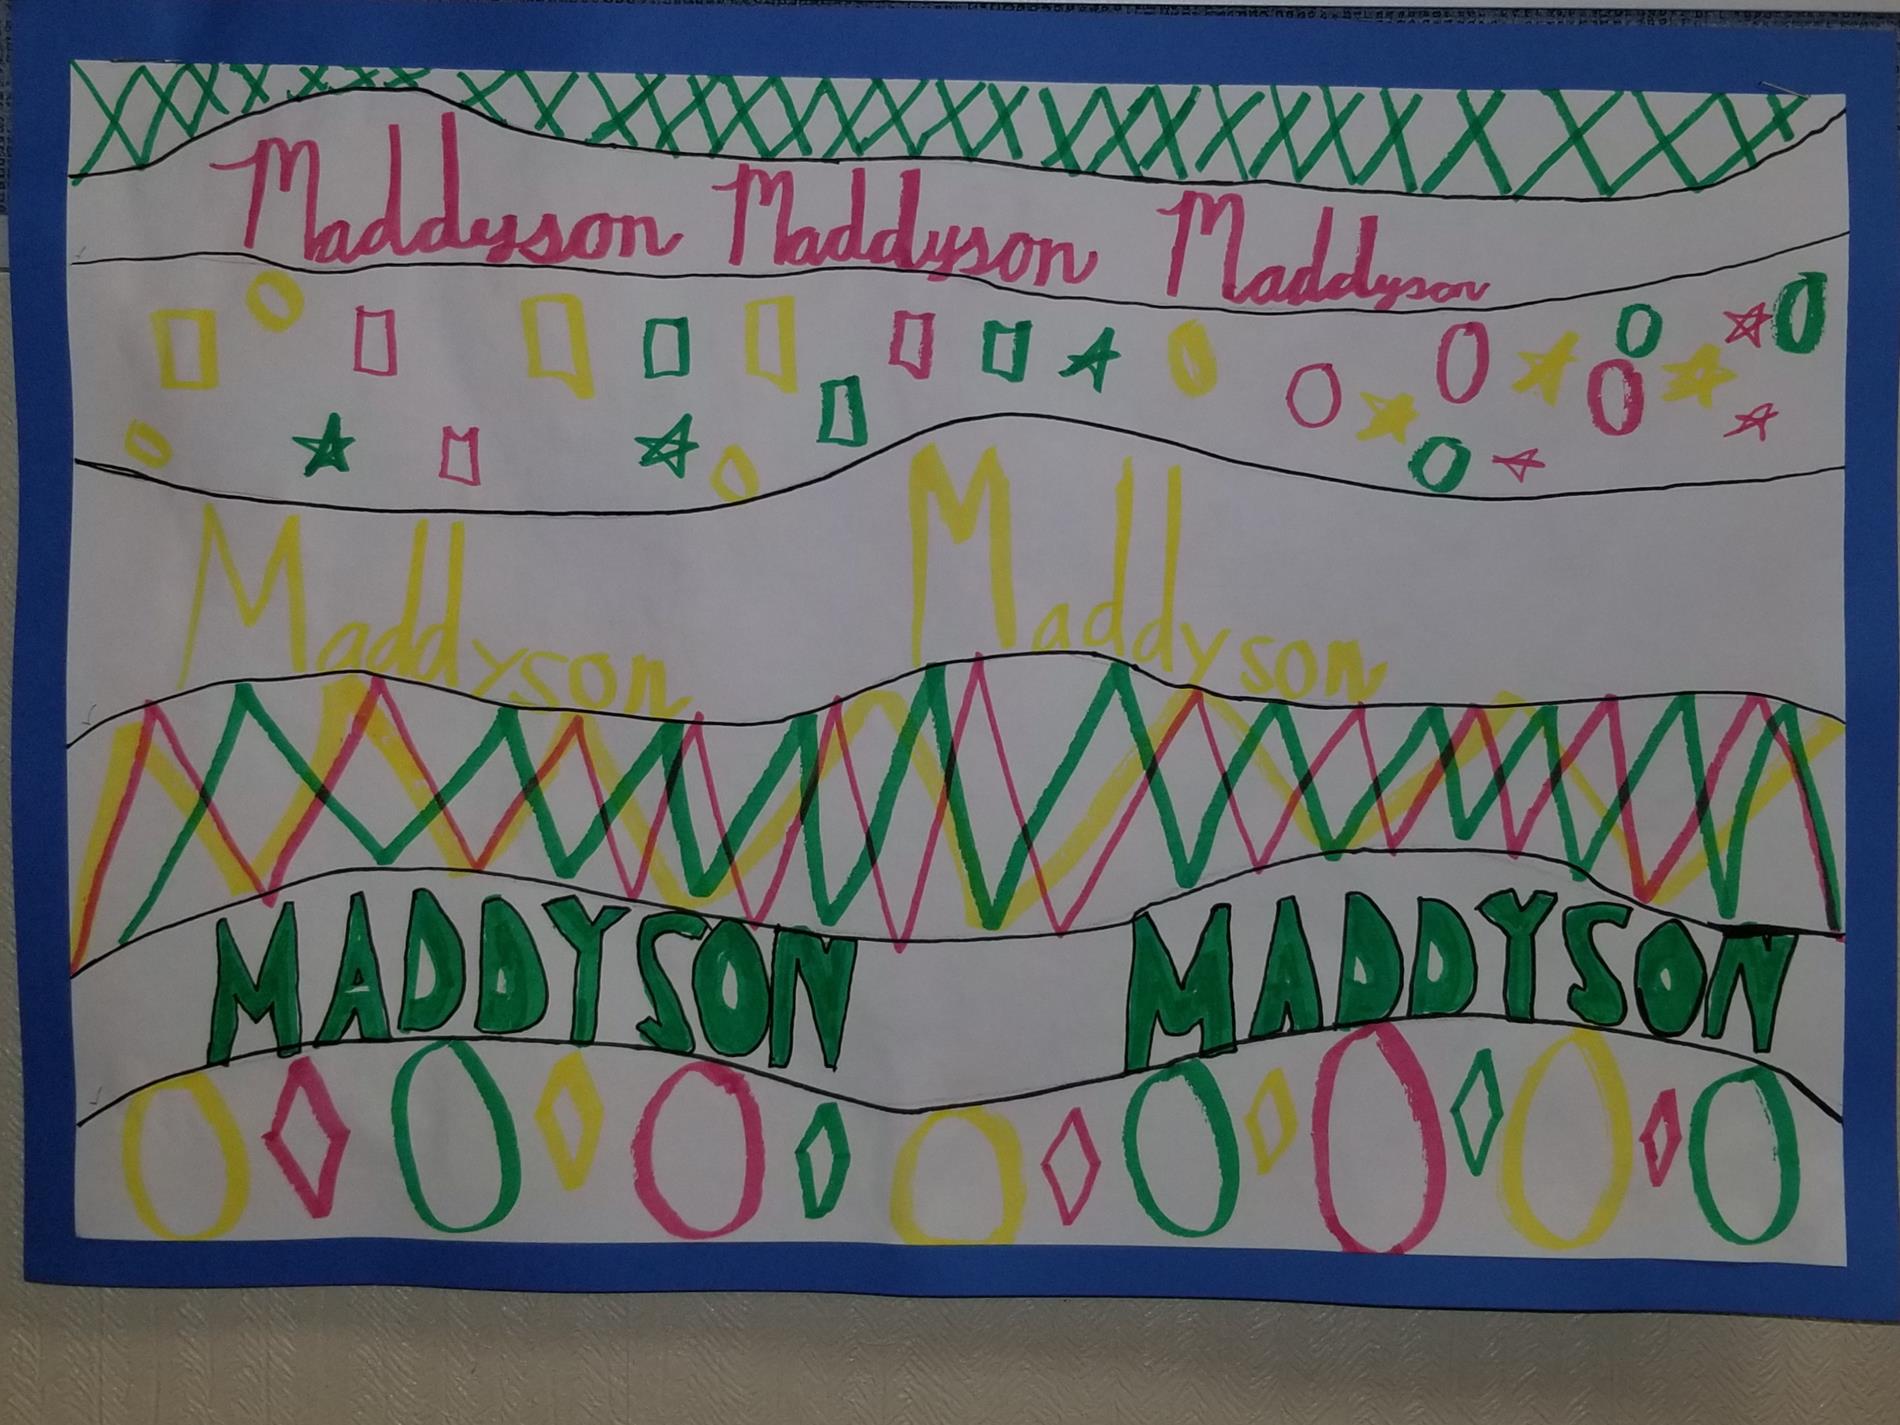 Maddyson Maddyson Maddyson
Maddyson Maddyson
MADDYSON MADDYSON